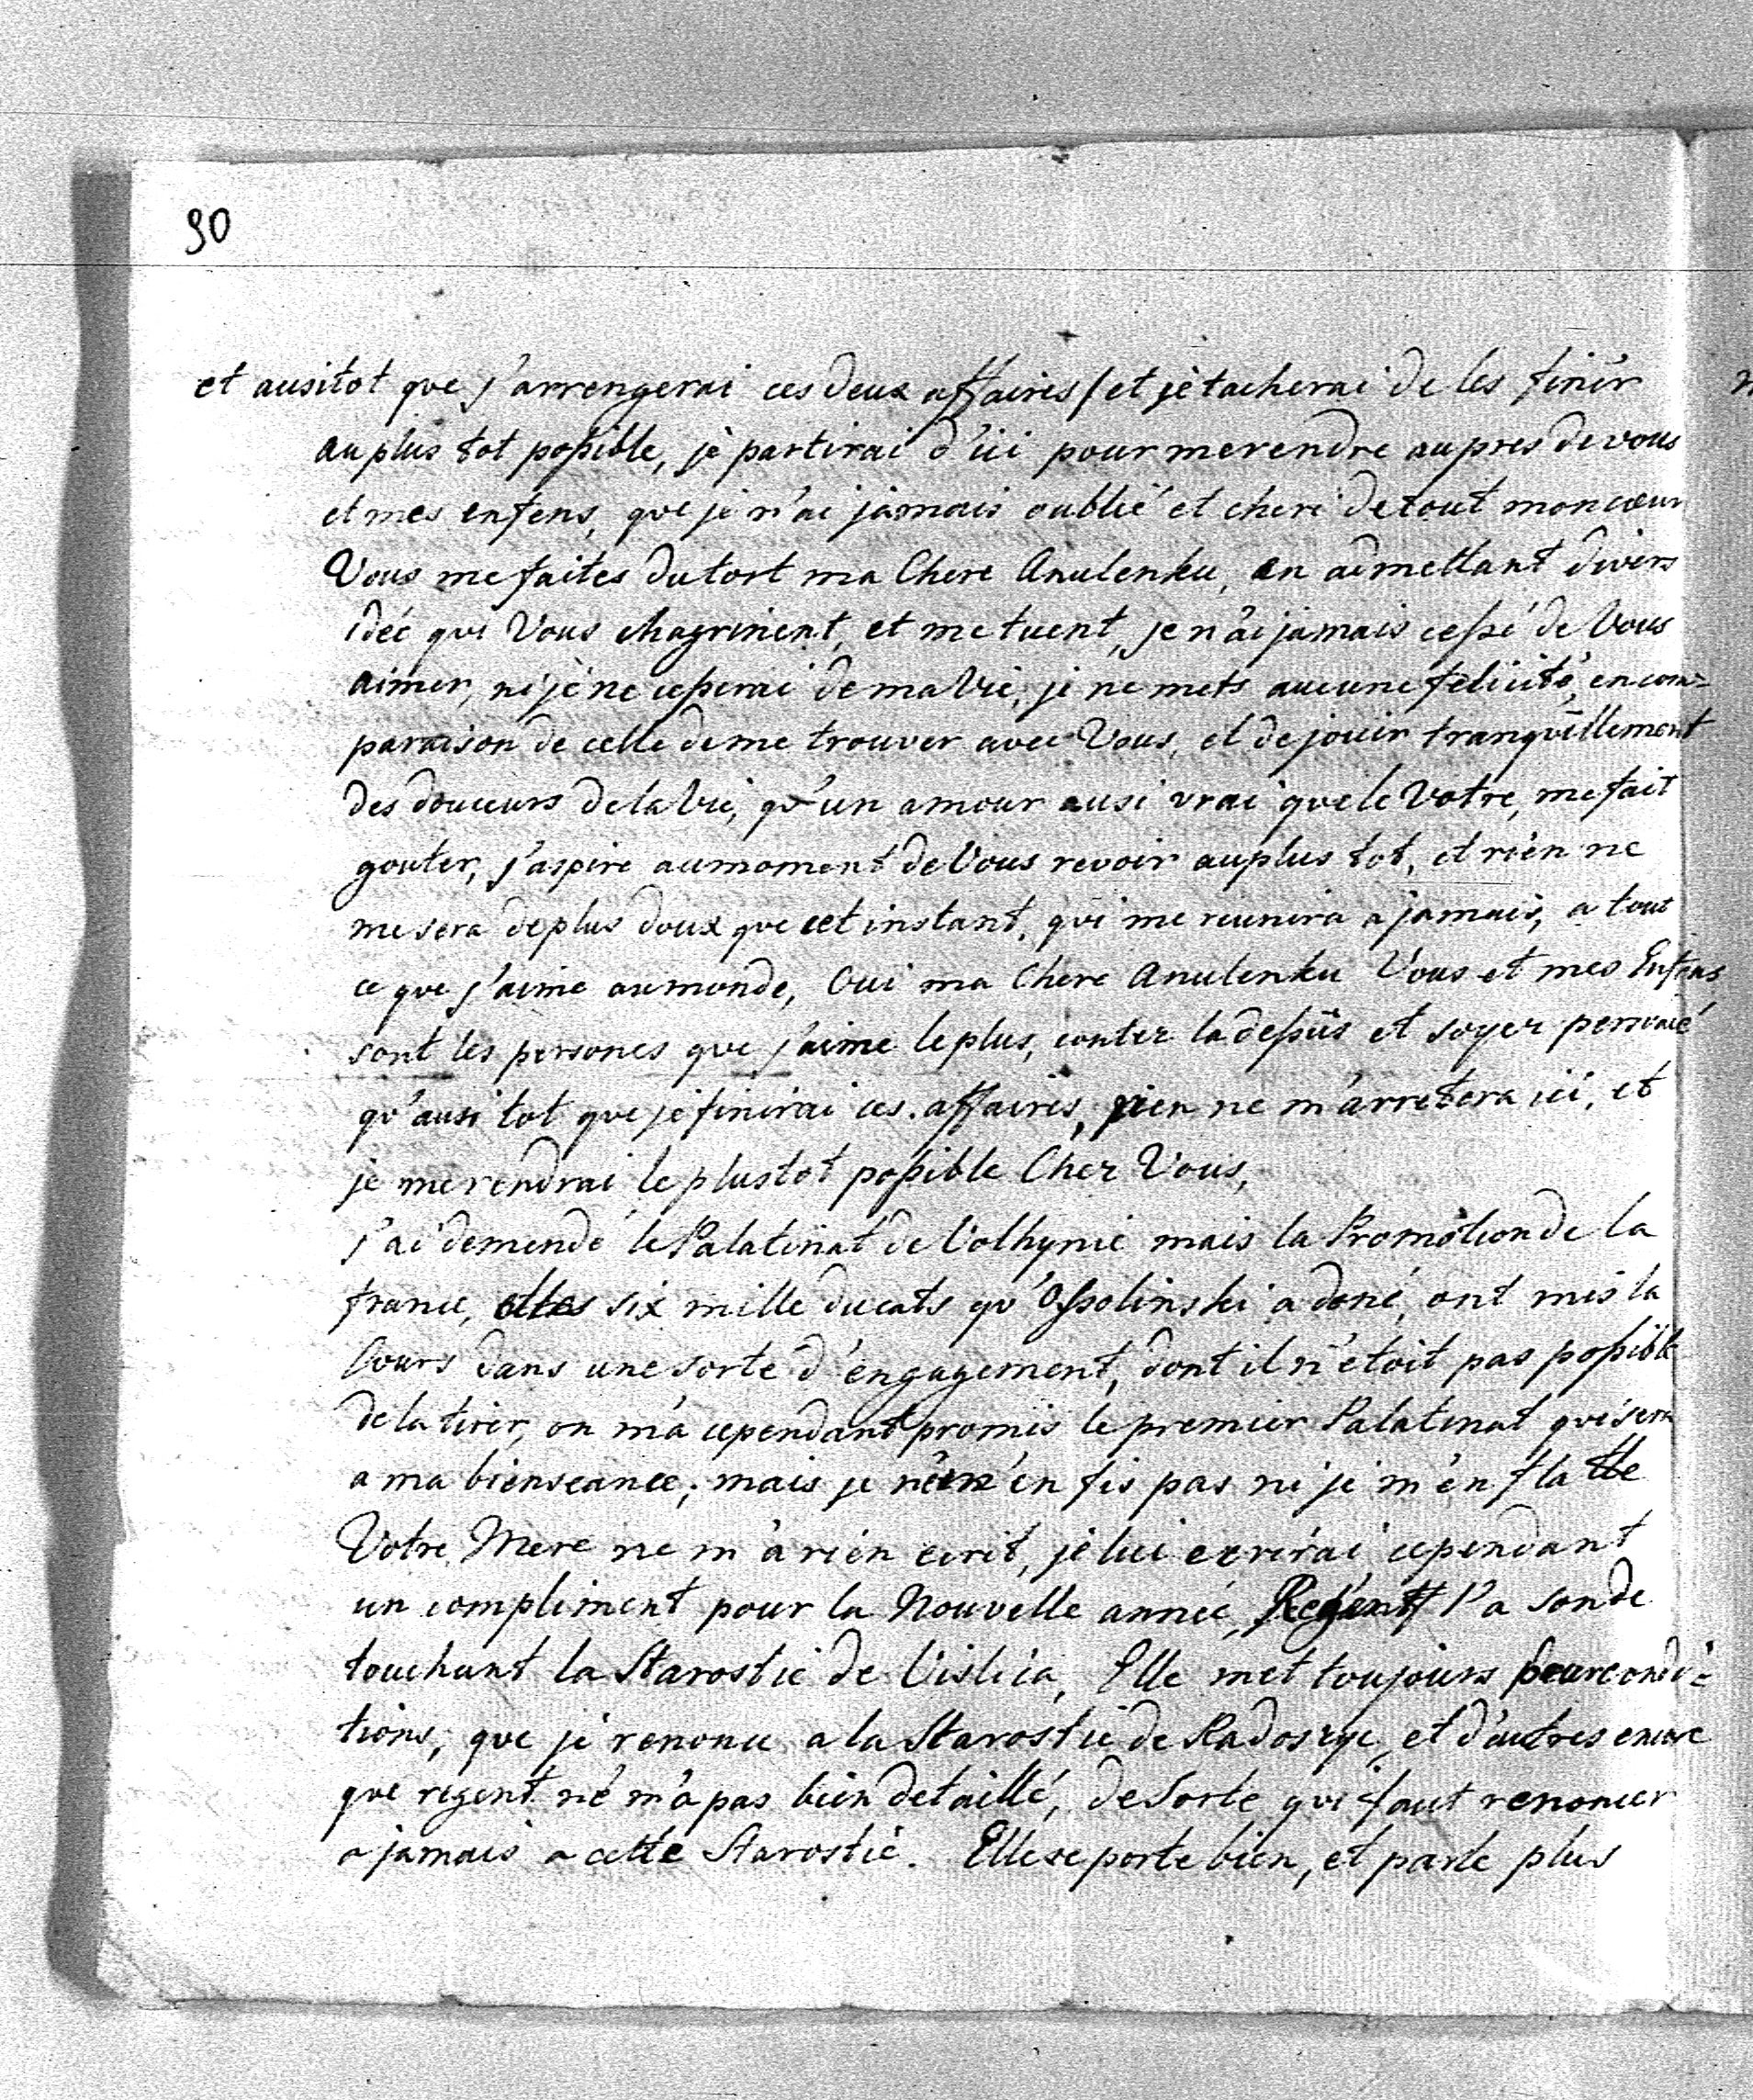 90
et ausitot que j'arrengerai ces deux affaires / et je tacherai de les finir
au plus tot possible, je partirai d'ici pour me rendre aupres de vous
et mes enfens, que je n'ai jamais oublié et cheri de tout mon cœur
Vous me faites du tort ma Chere Anulenku, en admettant divers
idée qui Vous chagrinent, et me tuent, je n'ai jamais cessé de Vous
aimer, ni je ne cesserai de ma Vie, je ne mets aucune felicité, en com=
paraison de celle de me trouver avec Vous, et de jouir tranquillement
des douceurs de la Vie, qu'un amour ausi vrai que le Votre, me fait
gouter, j'aspire au moment de Vous revoir au plus tot, et rien ne
me sera de plus doux que cet instant, qui me reunira a jamais, a tout
ce que j'aime au monde, Oui ma Chere Anulenku Vous et mes Enfens
sont les persones que j'aime le plus, contez la dessus et soyez persuadé
qu'ausi tot que je finirai ces affaires, rien ne m'arretera ici, et
je me rendrai le plustot possible Chez Vous,
j'ai demendé le Palatinat de Volhynie mais la Promotion de la
france, et les six mille ducats qu'Ossolinski a doné, ont mis la
Cours dans une sorte d'engagement, dont il n'etoit pas possible
de la tirer, on m'a cependant promis le premier Palatinat qui sera
a ma bienseance; mais je n'en fis pas ni je m'en flatte
Votre Mere ne m'a rien ecrit, je lui ecrirai cependant
un compliment pour la Nouvelle année, Regent l'a sonde
touchant la Starostie de Vislica, Elle met toujours pour condi=
tions, que je renonce a la Starostie de Radoszyc, et d'autres encore
que regent ne m'a pas bien detaillé, de sorte qui faut renoncer
a jamais a cette Starostie. Elle se porte bien, et parle plus